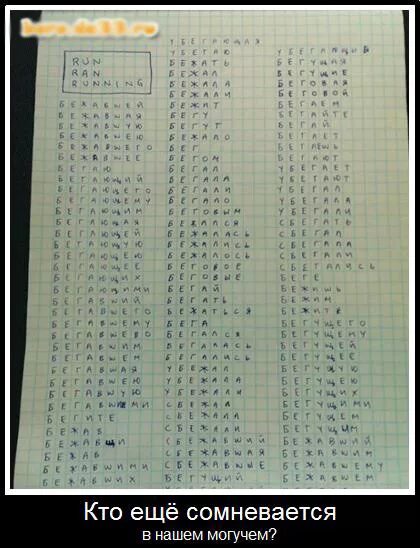 RUN
RAN
RUNNING
БЕЖАВШЕЙ
БЕЖАВШАЯ
БЕЖАВШУЮ
БЕЖАВШЕЮ
БЕЖАВШЕГО
БЕЖАВШЕЕ
БЕГАЮ
БЕГАЮЩИЙ
БЕГАЮЩЕГО
БЕГАЮЩЕМУ
БЕГАЮЩИМ
БЕГАЮЩАЯ
БЕГАЮЩЕЙ
БЕГАЮЩУЮ
БЕГАЮЩЕЮ
БЕГАЮЩЕЕ
БЕГАЮЩИХ
БЕГАЮЩИМИ
БЕГАВШИЙ
БЕГАВШЕГО
БЕГАВШЕМУ
БЕГАВШЕВО
БЕГАВШИМ
БЕГАВШЕМ
БЕГАВШАЯ
БЕГАВШЕЮ
БЕГАВШУЮ
БЕГАВШИМИ
БЕГИТЕ
БЕЖАВ
БЕЖАВЩИ
БЕЖАВ
БЕЖАВШИМИ
БЕЖАВШИХ
УБЕГАЮЩАЯ
УБЕГАЮ
БЕЖАТЬ
БЕЖАЛ
БЕЖАЛА
БЕЖАЛИ
БЕЖИТ
БЕГУ
БЕГУТ
БЕЖАЛО
БЕГ
БЕГОМ
БЕГАЛ
БЕГАЛА
БЕГАЛИ
БЕГАЛО
БЕГОВЫМ
БЕЖАЛСЯ
БЕЖАЛАСЬ
БЕЖАЛИСЬ
БЕЖАЛОСЬ
БЕГОВОЕ
БЕГОВЫЕ
БЕГАЙ
БЕГАТЬ
БЕЖАТЬСЯ
БЕГА
БЕГАЛСЯ
БЕГАЛАСЬ
БЕГАЛИСЬ
УБЕЖАЛ
УБЕЖАЛА
УБЕЖАЛИ
СБЕЖАЛ
СБЕЖАЛА
СБЕЖАЛИ
СБЕЖАВШИЙ
СБЕЖАВШАЯ
СБЕЖАВШЫЕ
БЕГУЩИЙ
УБЕГАЮЩИЕ
БЕГУЩАЯ
БЕГУЩИЕ
БЕГОВАЯ
БЕГОВОЙ
БЕГАЕМ
БЕГАЙТЕ
БЕГАЙ
БЕГАЕТ
БЕГАЕШЬ
БЕГАЮТ
УБЕГАЕТ
УБЕГАЮТ
УБЕГАЛ
УБЕГАЛА
УБЕГАЛИ
СБЕГАТЬ
СБЕГАЛ
СБЕГАЛА
СБЕГАЛИ
СБЕГАЛИСЬ
БЕГЕ
БЕЖИШЬ
БЕЖИМ
БЕЖИТЕ
БЕГУЩЕГО
БЕГУЩЕМУ
БЕГУЩЕЙ
БЕГУЩЕЕ
БЕГУЩУЮ
БЕГУЩЕЮ
БЕГУЩИХ
БЕГУЩИМИ
БЕГУЩЕМ
БЕГУЩЫМ
БЕЖАВШИЙ
БЕЖАВШИМ
БЕЖАВШЕМУ
БЕЖАВШЕМ
Кто ещё сомневается
в нашем могучем?